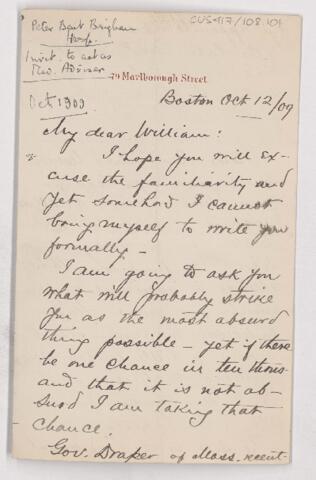 Peter Bent Brigham
Hosp.
Invit. to act as
Adviser
CUS417/108.101
79 Marlborough Street
Oct 1909
Boston Oct 12/09
My dear William:
I hope you will ex-
cuse the familiarity and
yet somehow I cannot
bring myself to write you
formally -
I am going to ask you
what will probably strike
you as the most absurd
thing possible - yet if there
be one chance in ten thous-
and that it is not ab-
surd I am taking that
chance.
Gov. Draper of Mass. recent-